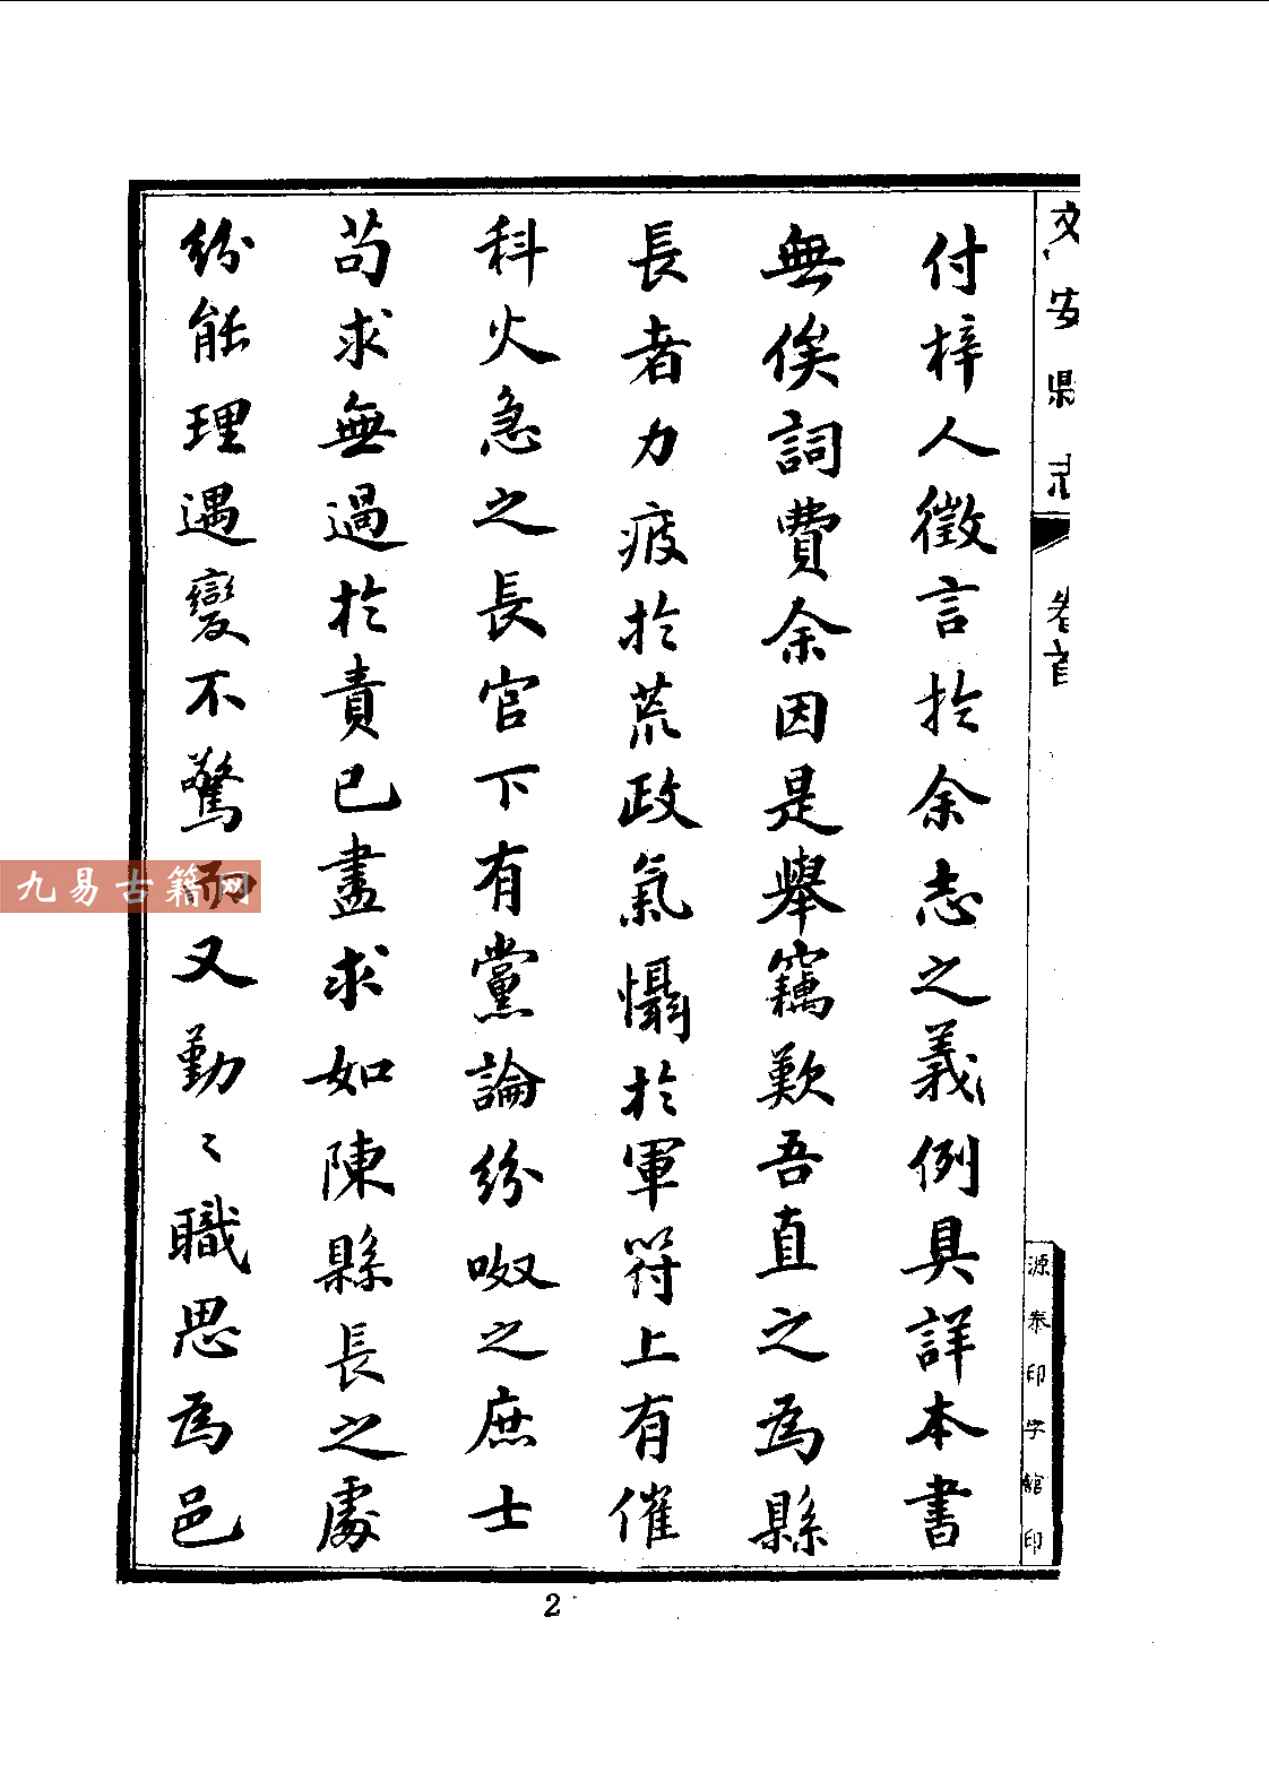 文安縣志
卷首
源泰印字館印
付梓人徵言於余志之義例具詳本書
無俟詞費余因是舉竊歎吾直之為縣
長者力疲於荒政氣懾於軍符上有催
科火急之長官下有黨論紛呶之庶士
苟求無過於責已盡求如陳縣長之處
紛能理遇變不驚而又勤〻職思為邑
九易古籍网
2